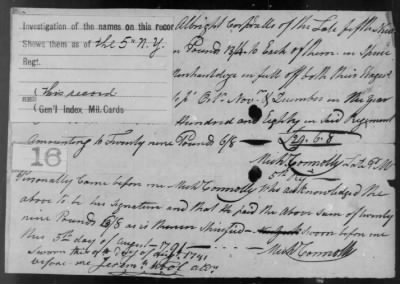 Investigation of the names on this recor
Shows them as of the 5th N.Y.
Regt.
This record
Gen'l Index Mil. Cards
16
Albright Corporalls of the Late fifth New
n Pounds 13/4 to Each of them in Specie
in full of both their Wages
Novr & December in the year
Hundred and Eighty in Said Regiment
Amounting to Twenty nine Pounds 6/8 £29.6.8
Michl Connolly Late P.M
5th Ny
Personally Came before me Michl Connolly who acknowledged the
above to be his Signature and that he paid the above Sum of twenty
nine Pounds 6/8 as is therein Specified Sworn before me
this 3th day of August 1791
Sworn this day of Augt 1791 Michl Connolly
before me